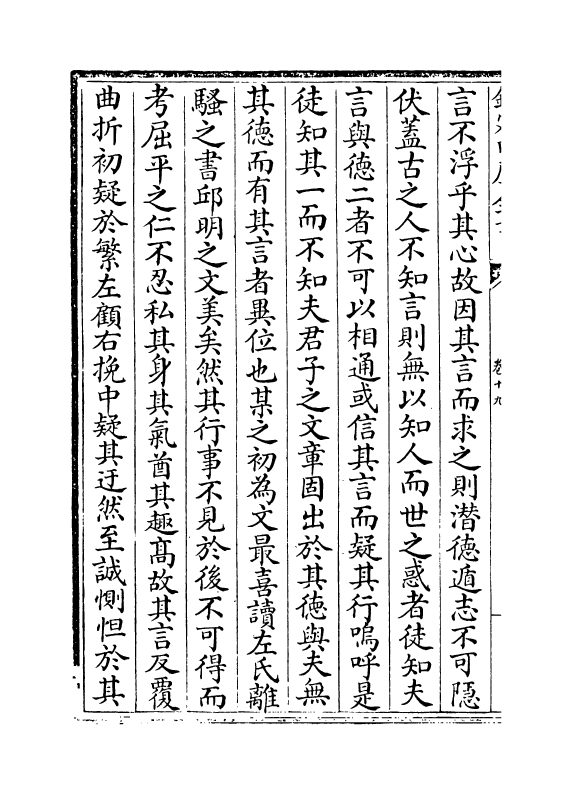 言不浮乎其心故因其言而求之則潛德遁志不可隱
伏蓋古之人不知言則無以知人而世之惑者徒知夫
言與德二者不可以相通或信其言而疑其行嗚呼是
徒知其一而不知夫君子之文章固出於其德與夫無
其德而有其言者異位也某之初為文最喜讀左氏離
騷之書邱明之文美矣然其行事不見於後不可得而
考屈平之仁不忍私其身其氣酋其趣髙故其言反覆
曲折初疑於繁左顧右挽中疑其迂然至誠惻怛於其
卷十九